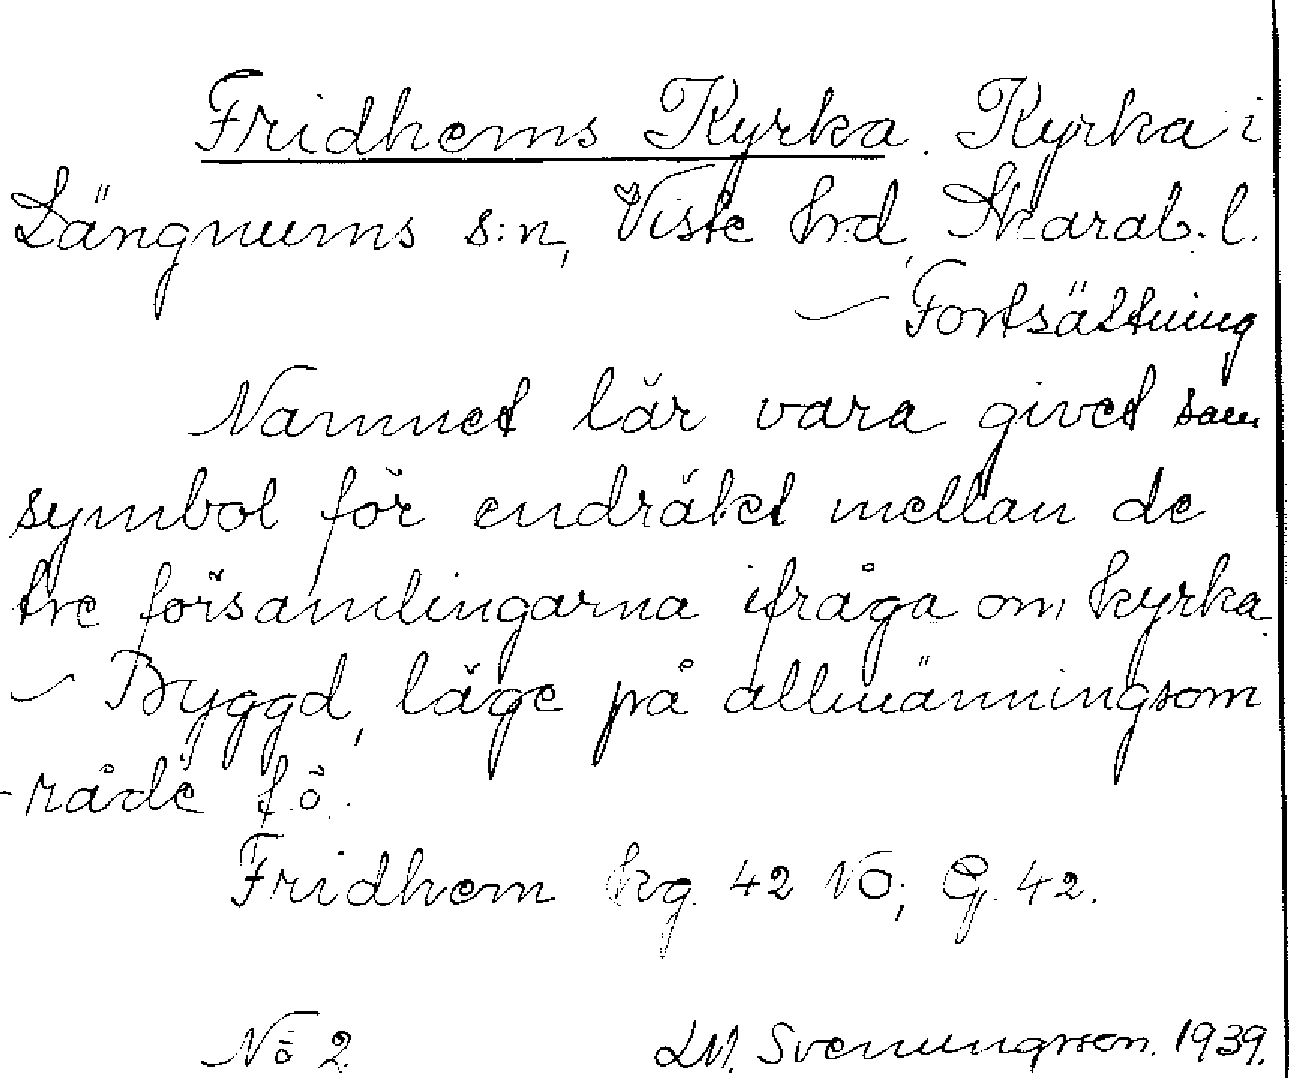 Fridhems Kyrka. Kyrka i
Längnums s:n, Viste hrd, Skarab. l.
— Fortsättning
Namnet lär vara givet som
symbol för endräkt mellan de
tre församlingarna ifråga om kyrka.
— Byggd, läge på allmänningsom
-råde f.ö.
Fridhem kg. 42 NO; G. 42.
No 2. Svenungsson. 1939.